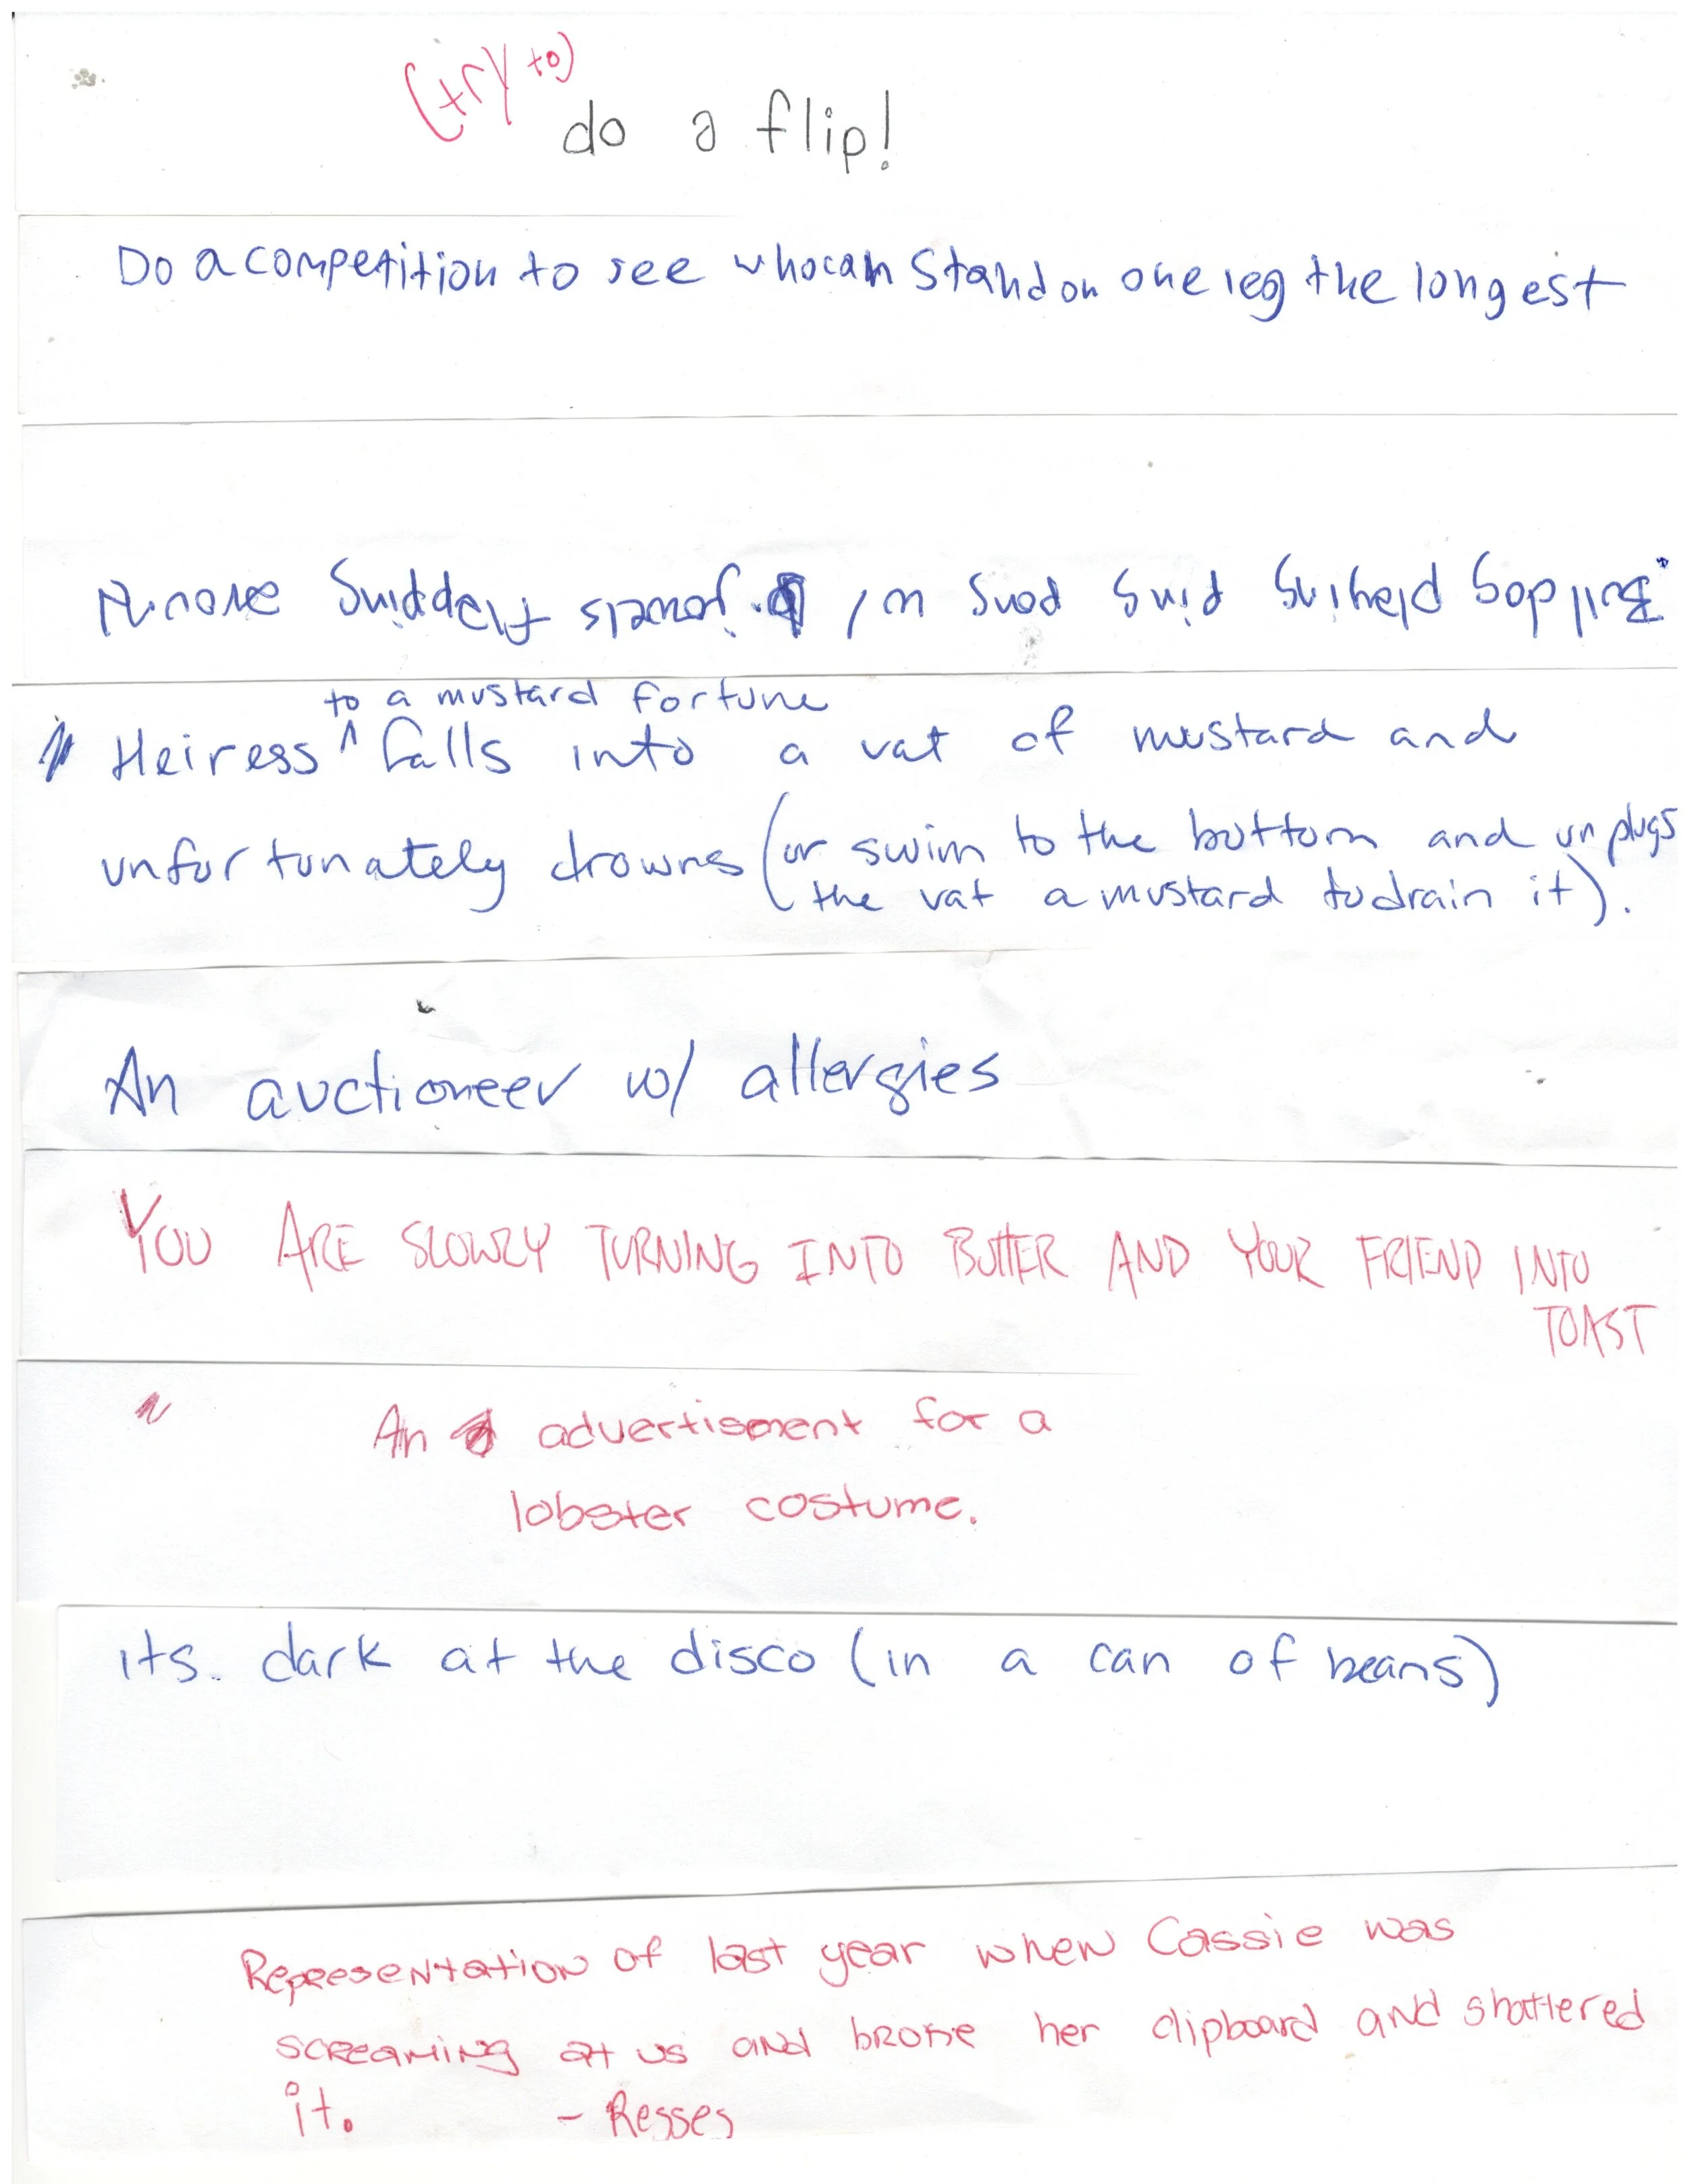 (try to)
do a flip!
Do a competition to see who can stand on one leg the longest
Bulldog playing ping pong w/ jowels flapping around
to a mustard fortune
Heiress ^ falls into a vat of mustard and
unfortunately drowns (or swim to the bottom and unplugs
the vat a mustard to drain it).
An auctioneer w/ allergies
YOU ARE SLOWLY TURNING INTO BUTTER AND YOUR FRIEND INTO
TOAST
An advertisement for a
lobster costume.
its dark at the disco (in a can of beans)
Representation of last year when Cassie was
screaming at us and broke her clipboard and shattered
it. - Resses